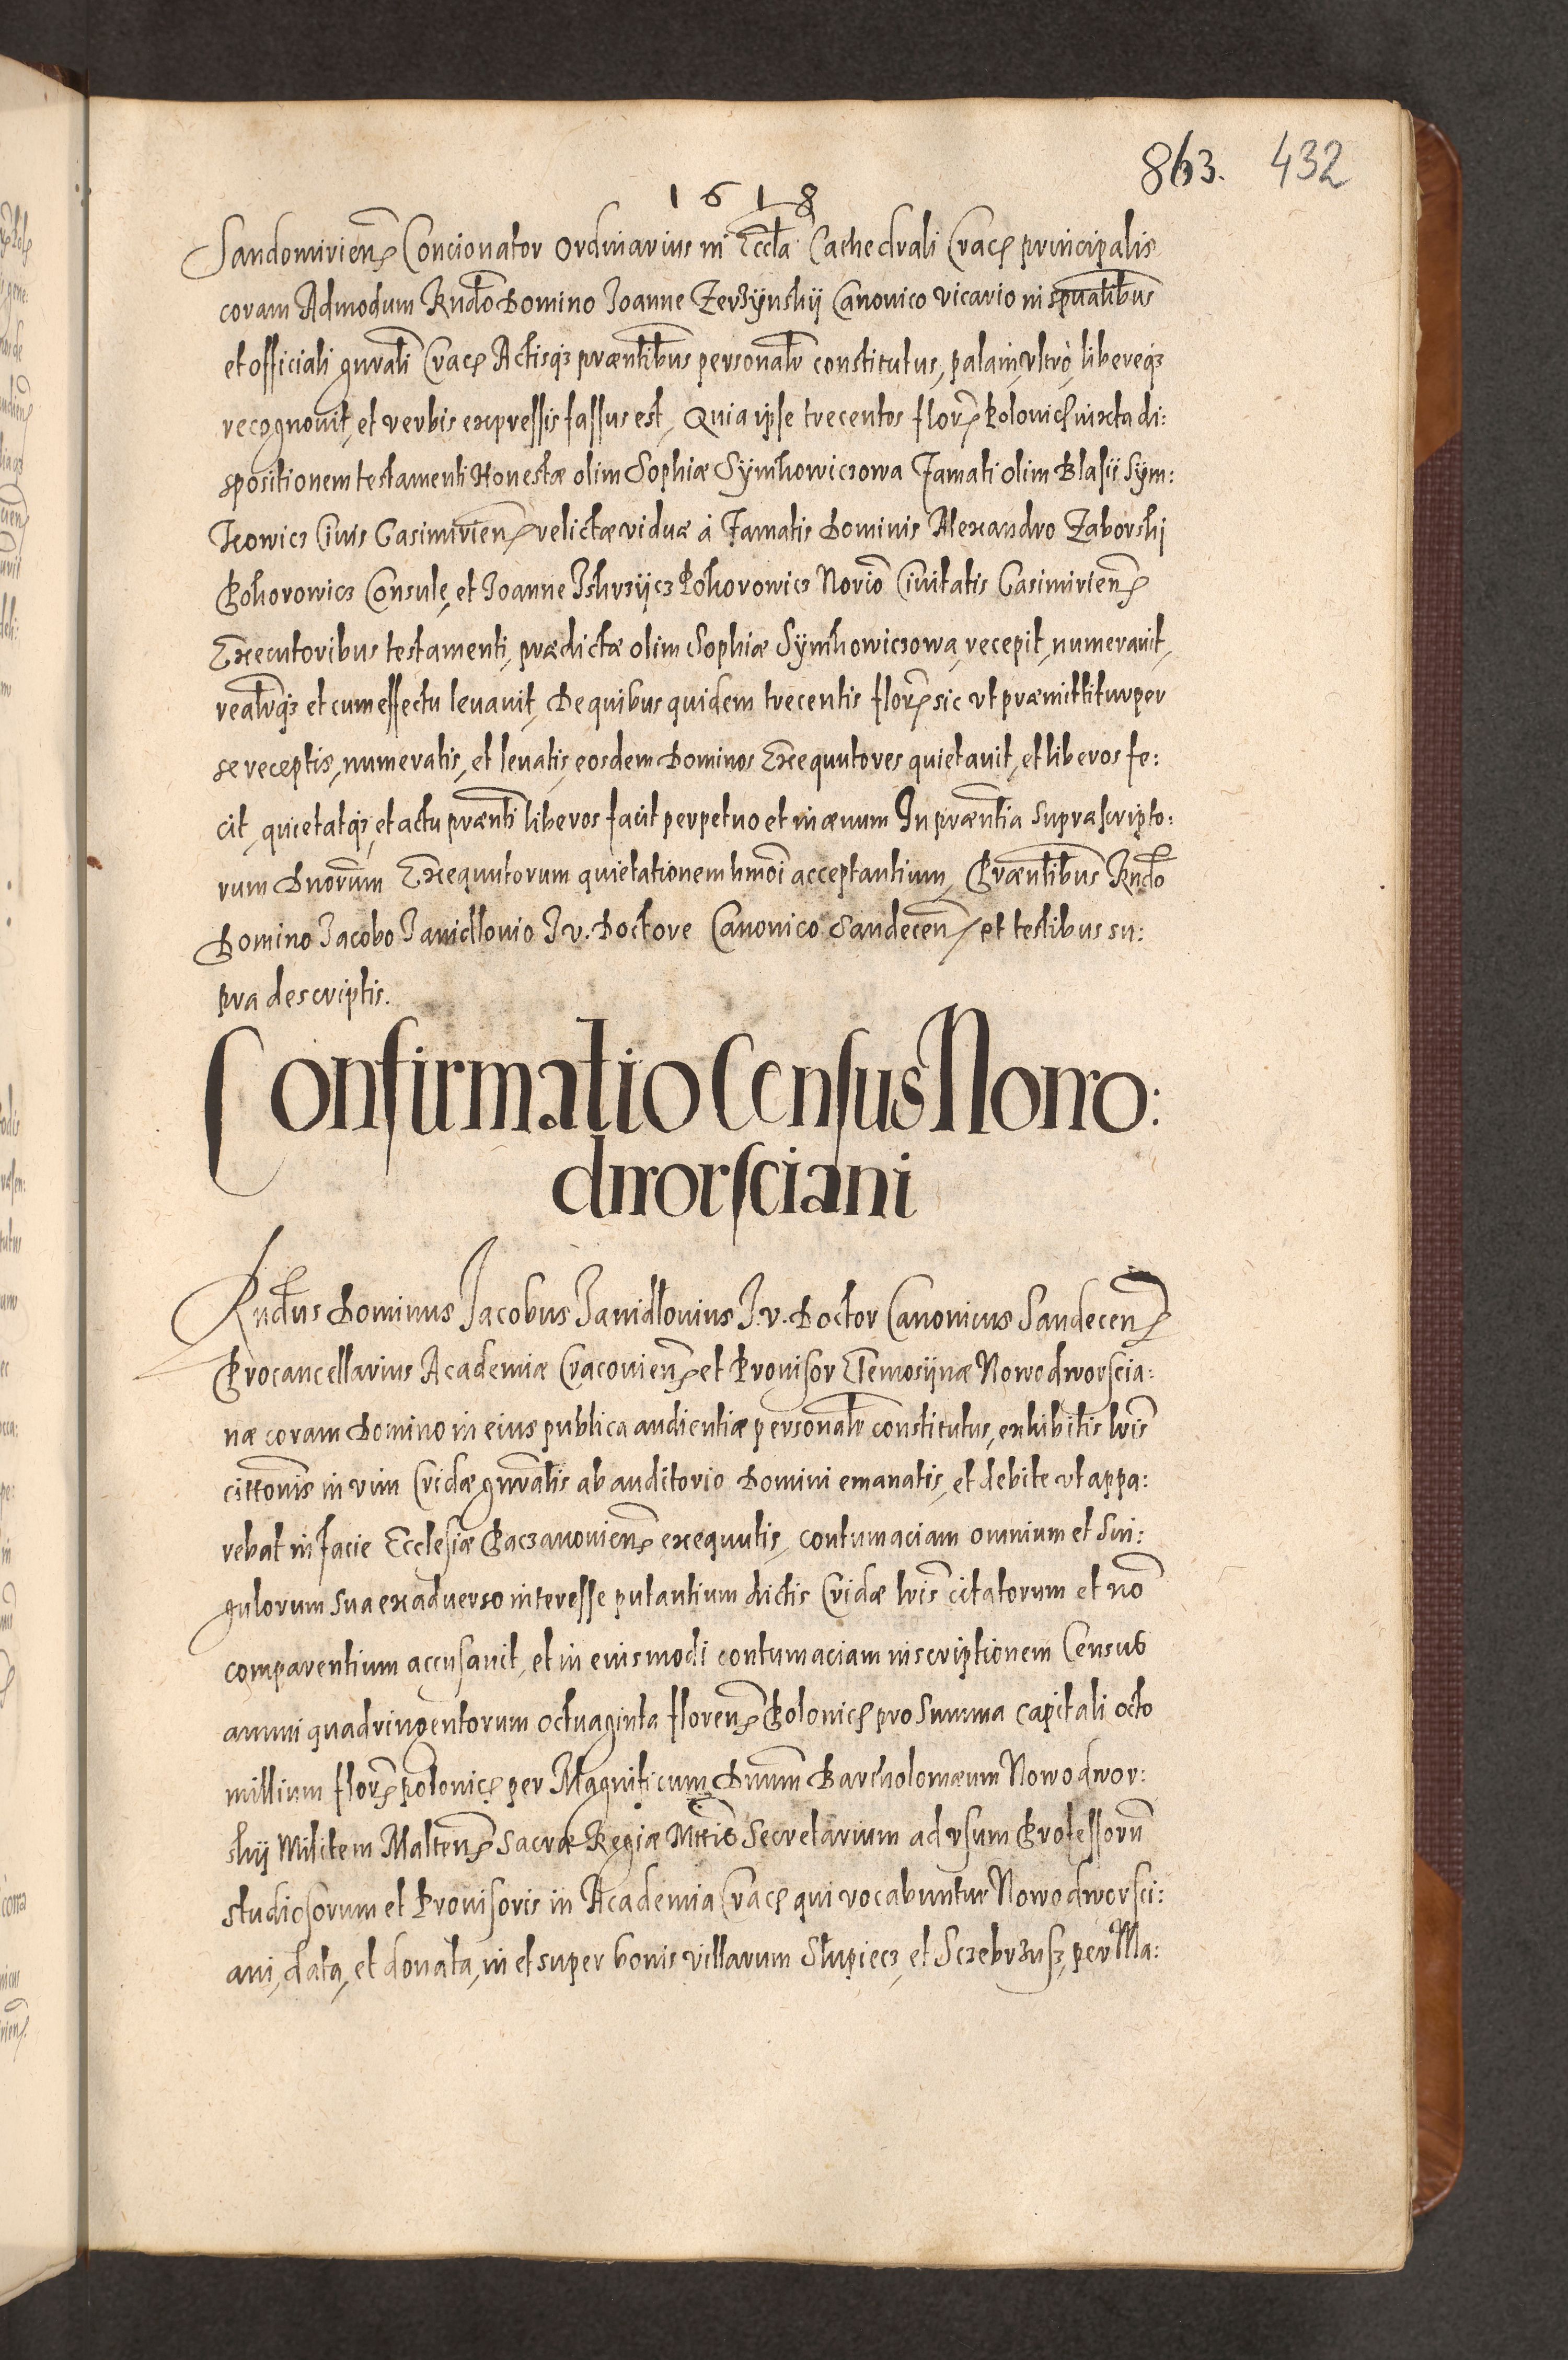 863. 432
1618
Sandomirien(s) Concionator Ordinarius in Eccla Cathedrali Crac(s) principalis
coram Admodum Rndo Domino Joanne Zerzÿnskÿ Canonico vicario in spualibus
et officiali gnrali Crac(s) Actisq(ue) præntibus personalr constitutus, palam, vltrò, libereq(ue)
recognovit, et verbis expressis fassus est, Quia ipse trecentos flor(s) Polonic(s) iuxta di:
spositionem testamenti Honestæ olim Sophiæ Sÿmkowiczowa Famati olim Blasii Sÿm:
kowicz Ciuis Casimirien(s) relictæ viduæ à Famatis Dominis Alexandro Zaborski
Pohorowicz Consule, et Joanne Jskrzÿcz Pohorowicz Norio Ciuitatis Casimirien(s)
Executoribus testamenti, prædictæ olim Sophiæ Sÿmkowiczowa, recepit, numerauit,
realrq(ue) et cum effectu leuauit, De quibus quidem trecentis flor(s) sic vt præmittitur per
se receptis, numeratis, et leuatis, eosdem Dominos Exequutores quietauit, et liberos fe:
cit, quietatq(ue), et actu prænti liberos facit perpetuo et in æuum In præntia suprascripto:
rum Dnorum Exequutorum quietationem hmoi acceptantium, Præntibus Rndo
Domino Jacobo Janidlouio J. v. Doctore Canonico Sandecen(s) et testibus su:
pra descriptis.
Confirmatio Census Nowo:
dworsciani
Rndus Dominus Jacobus Janidlouius J. v. Doctor Canonicus Sandecen(s)
Procancellarius Academiæ Cracouien(s) et Prouisor Elemosÿnæ Nowodworscia:
næ coram Domino in eius publica audientiæ personalr constitutus, exhibitis lris
cittonis in vim Cridæ gnralis ab auditorio Domini emanatis, et debite vt appa:
rebat in facie Ecclesiæ Paczanouien(s) exequutis, contumaciam omnium et sin:
gulorum sua ex aduerso interesse putantium dictis Cridæ lris citatorum et no
comparentium accusauit, et in eiusmodi contumaciam inscriptionem Census
annui quadringentorum octuaginta floren(s) Polonic(s) pro Summa capitali octo
millium flor(s) polonic(s) per Magnificum Dnum Bartholomæum Nowodwor:
skÿ Militem Malten(s) Sacræ Regiæ Mttis Secretarium ad vsum Professoru
studiosorum et Prouisoris in Academia Crac(s) qui vocabuntur Nowodworsci:
ani, data, et donata, in et super bonis villarum Słupiecz, et Sczebrzusz, per Ma: